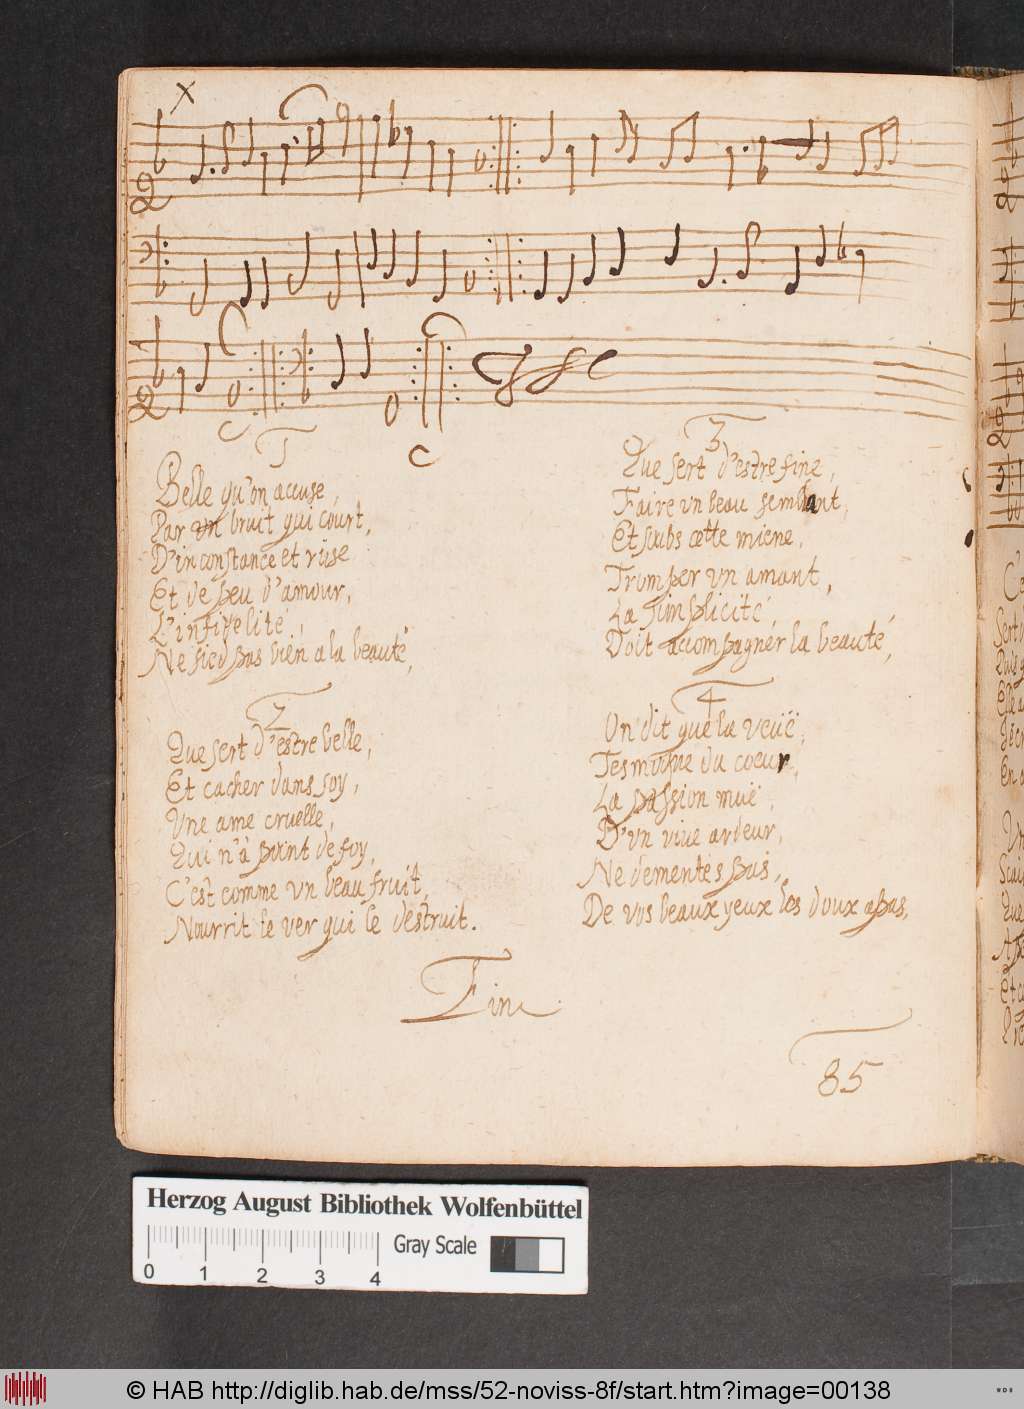 X
1
Belle qu'on accuse,
Par un bruit qui court,
D'inconstance et ruse
Et de peu d'amour,
L'infidelité,
Ne sied pas bien a la beauté,
2
Que sert d'estre belle,
Et cacher dans soy,
Vne ame cruelle,
Qui n'à point de foy,
C'est comme vn beau fruit,
Nourrit le ver qui le destruit.
3
Que sert d'estre fine,
Faire vn beau semblant,
Et soubs cette miene,
Tromper vn amant,
La simplicité,
Doit accompagner la beauté,
4
On dit que la veüe,
Tesmoigne du coeur,
La passion muë,
D'vn viue ardeur,
Ne dementes pas,
De vos beaux yeux les doux apas,
Fine
85
Herzog August Bibliothek Wolfenbüttel
Gray Scale
0 1 2 3 4
© HAB http://diglib.hab.de/mss/52-noviss-8f/start.htm?image=00138